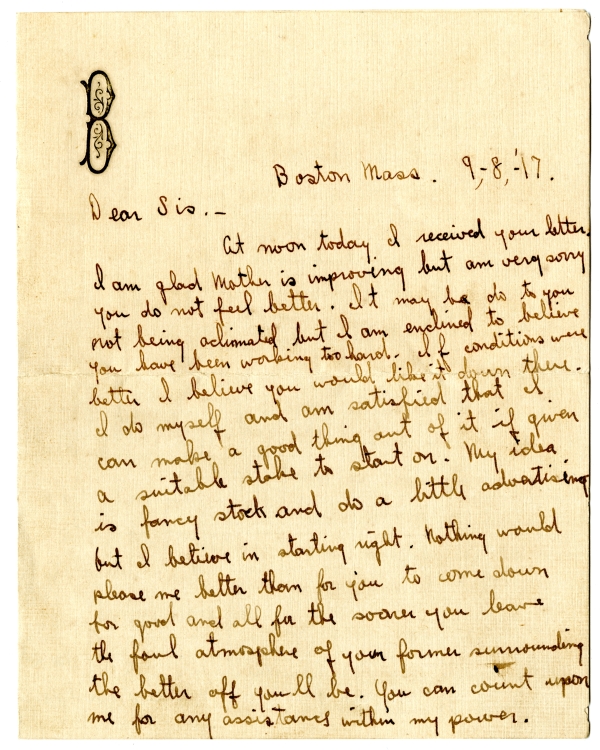 B
Boston Mass. 9,-8,-'17.
Dear Sis.-
At noon today I received your letter.
I am glad Mother is improving but am very sorry
you do not feel better. It may be do to you
not being aclimated but I am enclined to believe
you have been working too hard. If conditions were
better I believe you would like it down there.
I do myself and am satisfied that I
can make a good thing out of it if given
a suitable stake to start on. My idea
is fancy stock and do a little advertising
but I believe in starting right. Nothing would
please me better than for you to come down
for good and all for the sooner you leave
the foul atmosphere of your former surrounding
the better off you'll be. You can count upon
me for any assistance within my power.